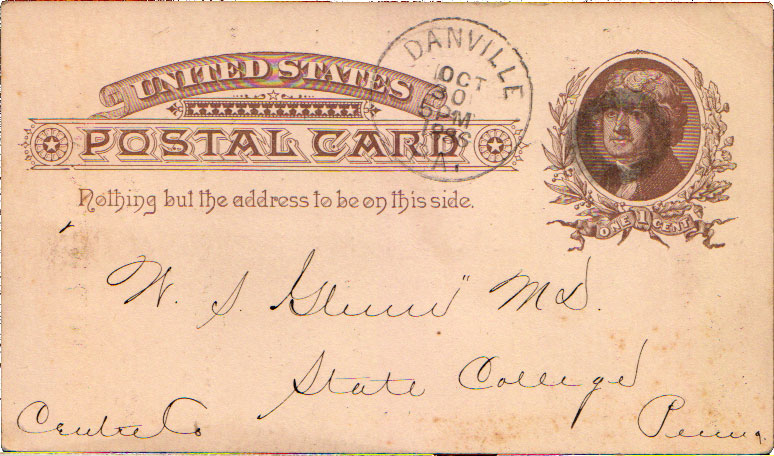 UNITED STATES
POSTAL CARD
Nothing but the address to be on this side.
DANVILLE
OCT
30
5 PM
1886
PA.
ONE 1 CENT
W. S. Glenn M.D.
State College
Centre Co
Penna.